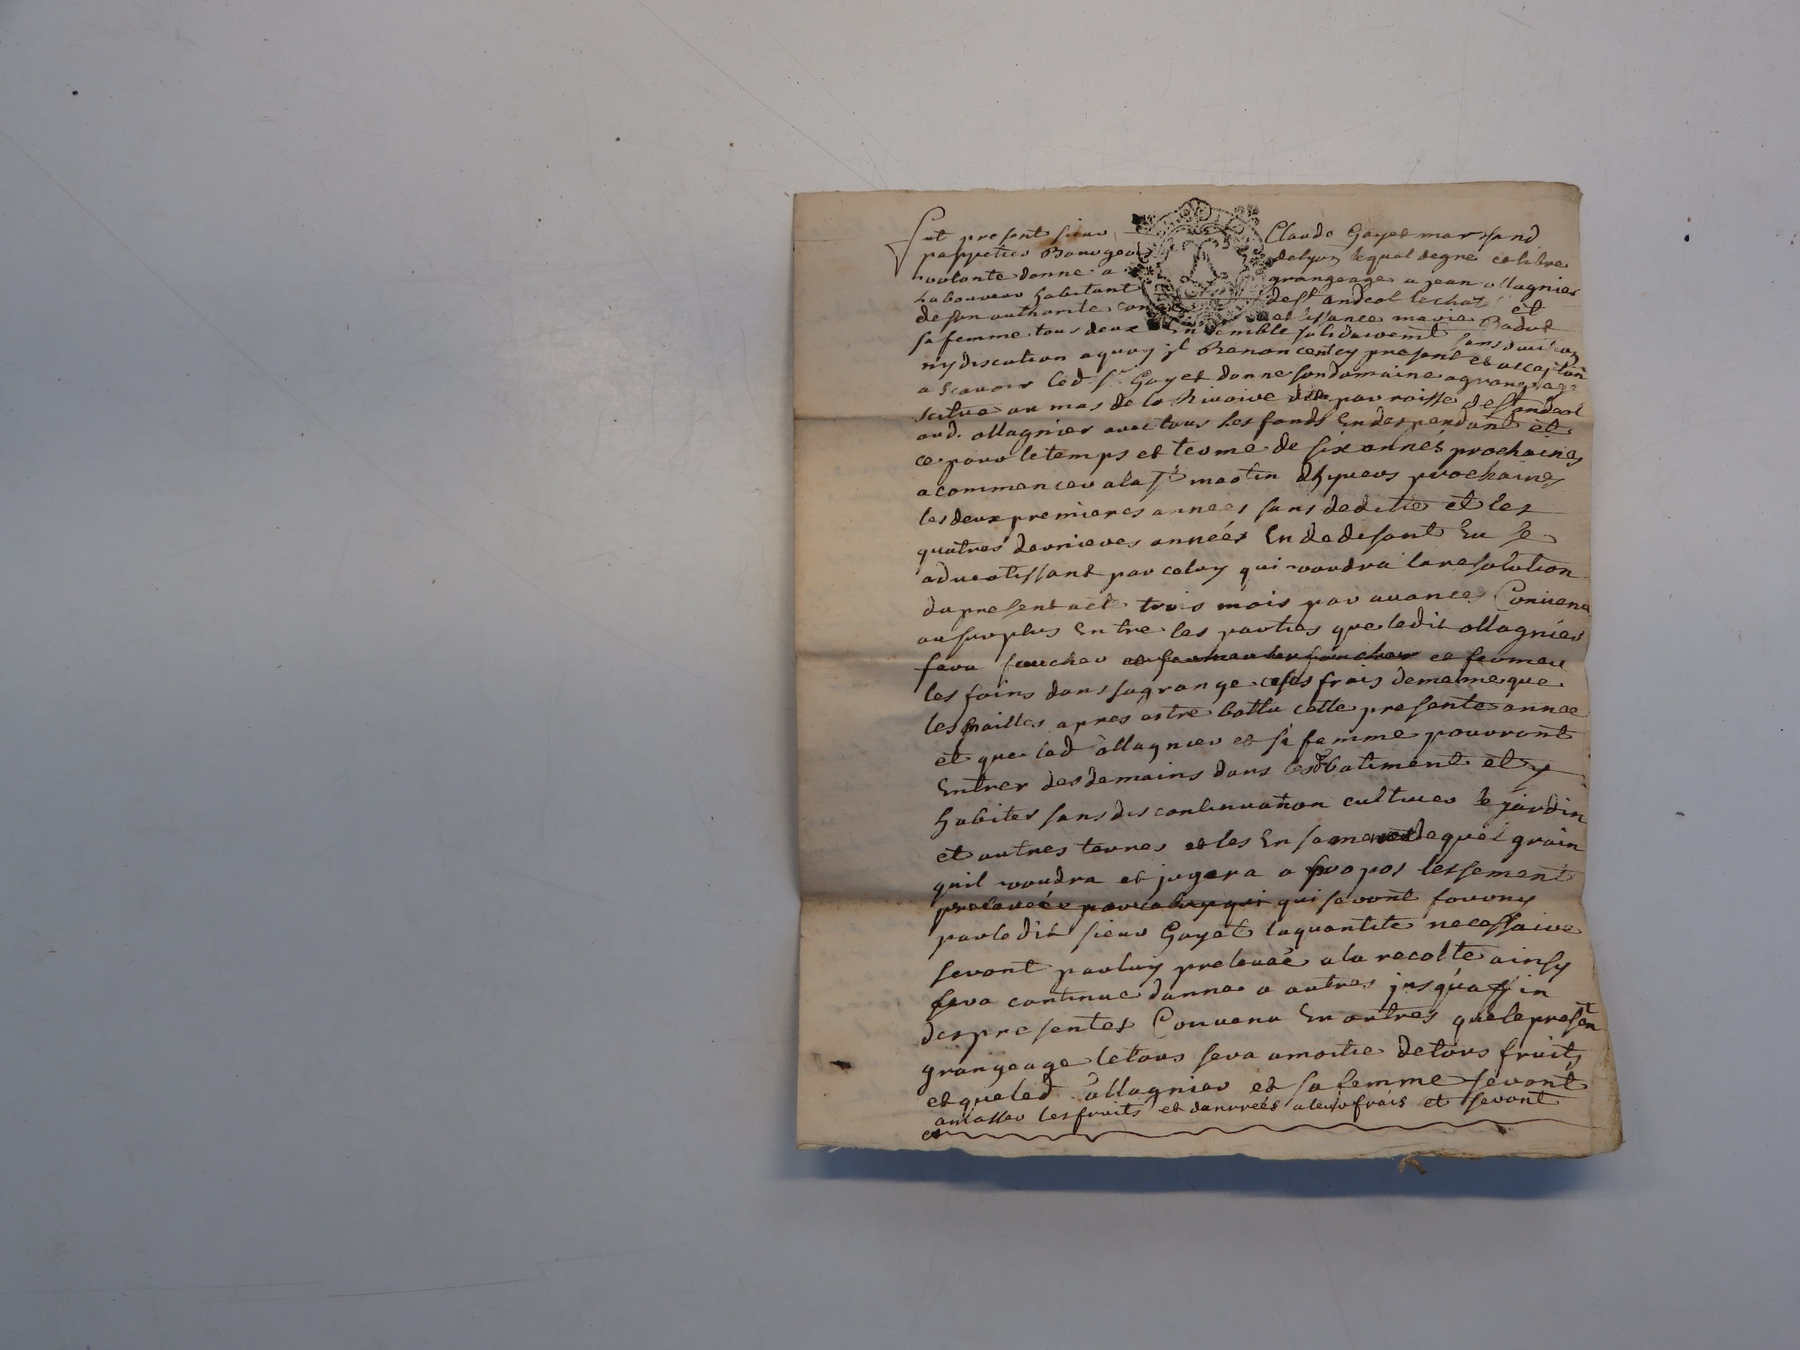 fut present sieur Claude Gayet marchand
pappetier Bourgeois delyon lequel degre et libre
volonte donne a grangeage a jean ollagnier
laboureur habitant de st andeol lechat et
de son authorite marie Badut
sa femme tous deux ensemble solidairement sans division
ny discution a quoy jl Renoncent cy present et acceptan
a scavoir led sr Gayet donne son domaine a grangeage
scitue au mas de la Rivoire parroisse de st andeol
aud. ollagnier avec tous les fonds En despendant et
ce pour le temps et terme de six annés prochaines
a commencer a la st martin dhyvers prochaines
les deux premieres annees sans dedite et les
quatres dernieres années En dedisant En se
advertissant par celuy qui voudra la resolution
du present act trois mois par avances Convenu
au surplus Entre les parties que ledit ollagnier
fera faucher et fermer
les foins dans sa grange a ses frais de meme que
les pailles apres estre battu cette presente annee
et que led ollagnier et sa femme pourront
Entrer des demains dans batiment et y
habiter sans discontinuation cultiver le jardin
et autres terres et les En semence de quel grain
quil voudra et jugera a propos les sement
qui seront fourny
par ledit sieur Gayet la quantite necessaire
seront par luy prelevée a la recolte ainsy
sera continue dannee a autres jusqua fin
des presentes Convenu En autres que le presen
grangeage letous sera a moitie de tous fruits
et que led. ollagnier et sa femme seront
amasser les fruits et danrrées a leur frais et seront